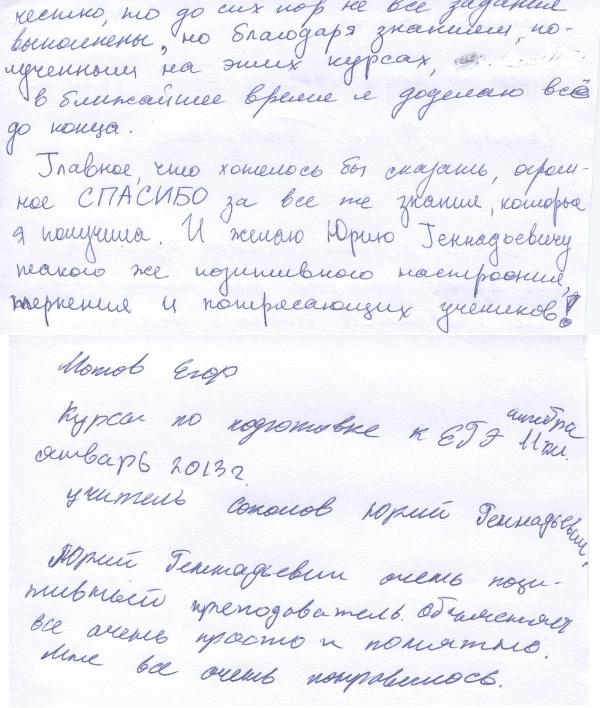 честно, то до сих пор не все задания
выполнены, но благодаря знаниям, по-
лученным на этих курсах,
в ближайшее время я доделаю всё
до конца.
Главное, что хотелось бы сказать, огром-
ное СПАСИБО за все те знания, которые
я получила. И желаю Юрию Геннадьевичу
такого же позитивного настроения,
терпения и потрясающих учеников!
Мотов Егор
Курсы по подготовке к ЕГЭ алгебра 11 кл.
январь 2013 г.
учитель Соколов Юрий Геннадьевич.
Юрий Геннадьевич очень пози-
тивный преподователь. Объясняет
все очень просто и понятно.
Мне все очень понравилось.